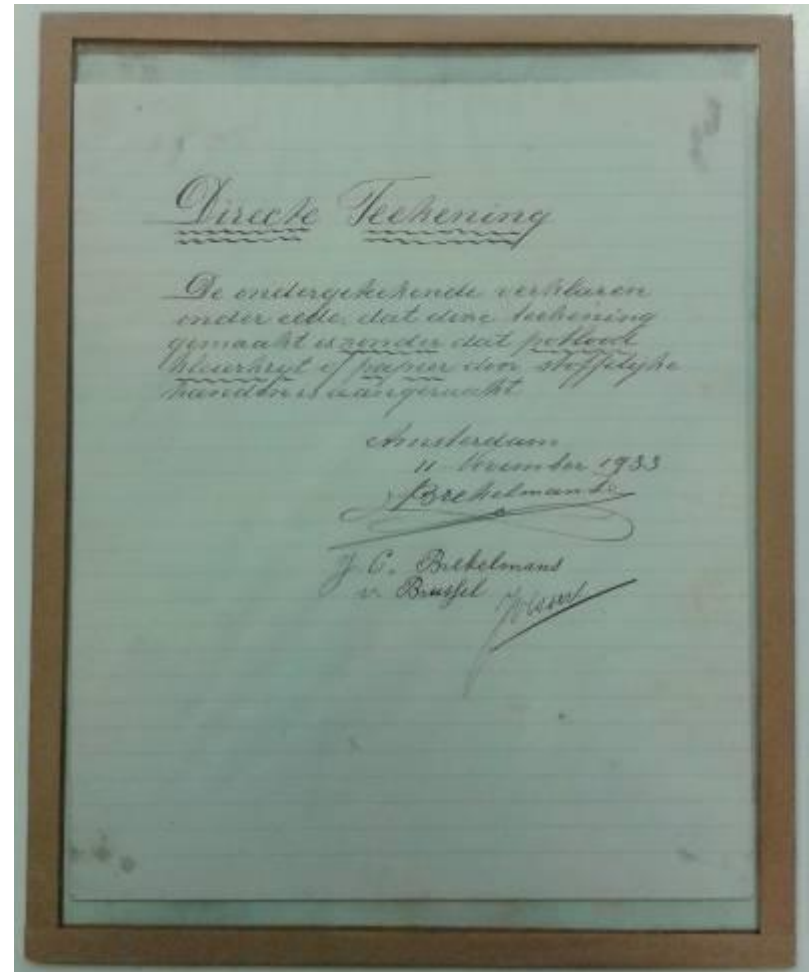 Directe Teekening
De ondergeteekende verklaren
onder eede, dat deze teekening
gemaakt is zonder dat potlood
kleurkryt of papier door stoffelyke
handen is aangeraakt.
Amsterdam
11 November 1933
Brekelmans
J. C. Brekelmans
v. Brussel